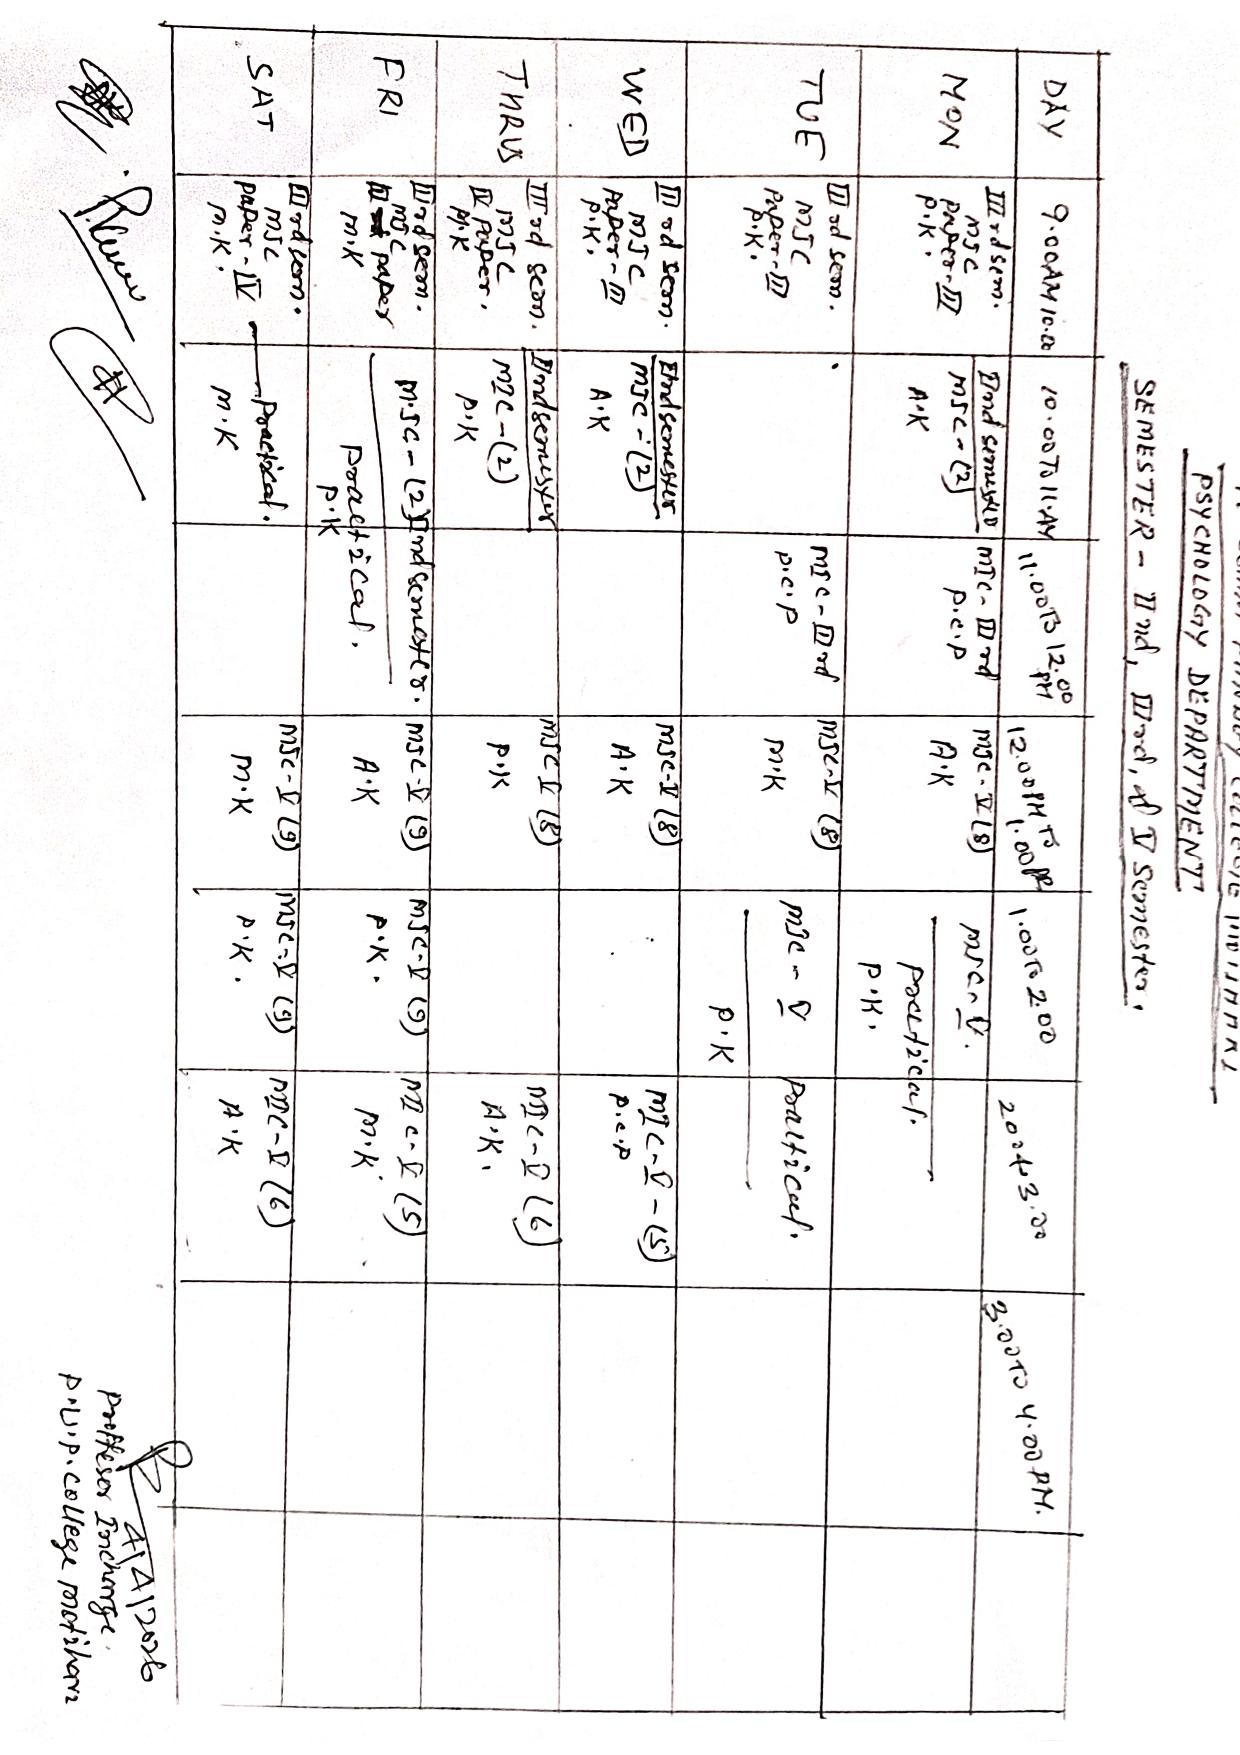 PSYCHOLOGY DEPARTMENT
SEMESTER - IInd, IIIrd, & V Semester.
DAY 9.00AM 10.00 10.00 TO 11.AM 11.00 TO 12.00 PM 12.00 PM TO 1.00 PM 1.00 TO 2.00 3.00 TO 4.00 PM.
MON
IIIrd sem.
MJC
paper-III
P.K.
IInd semester
MJC-(2)
A.K
MIC-IIIrd
P.C.P
MJC-V(8)
A.K
MJC-V.
Practical.
P.K.
TUE
III rd sem.
MJC
Paper-III
P.K.
MIC-IIIrd
P.C.P
MJC-V(8)
M.K
MIC-V Practical.
P.K
WED
III rd sem.
MJC
Paper-III
P.K.
IInd semester
MJC-(2)
A.K
MJC-V(8)
A.K
MIC-V-(5)
P.C.P
THRUS
III rd sem.
MJC
IV paper.
M.K
IInd semester
MIC-(2)
P.K
MJC-V(8)
P.K
MIC-V(6)
A.K.
FRI
III rd sem.
MJC
paper
M.K
MJC-(2) IInd semester.
Practical.
P.K
MJC-V(9)
A.K
MJC-V(9)
P.K.
MIC-V(5)
M.K
SAT
III rd sem.
MJC
Paper-IV
M.K.
Practical.
M.K
MJC-V(9)
M.K
MJC-V(9)
P.K.
MIC-V(6)
A.K
4/4/2026
Proffesor Incharge.
P.U.P. College Motihari